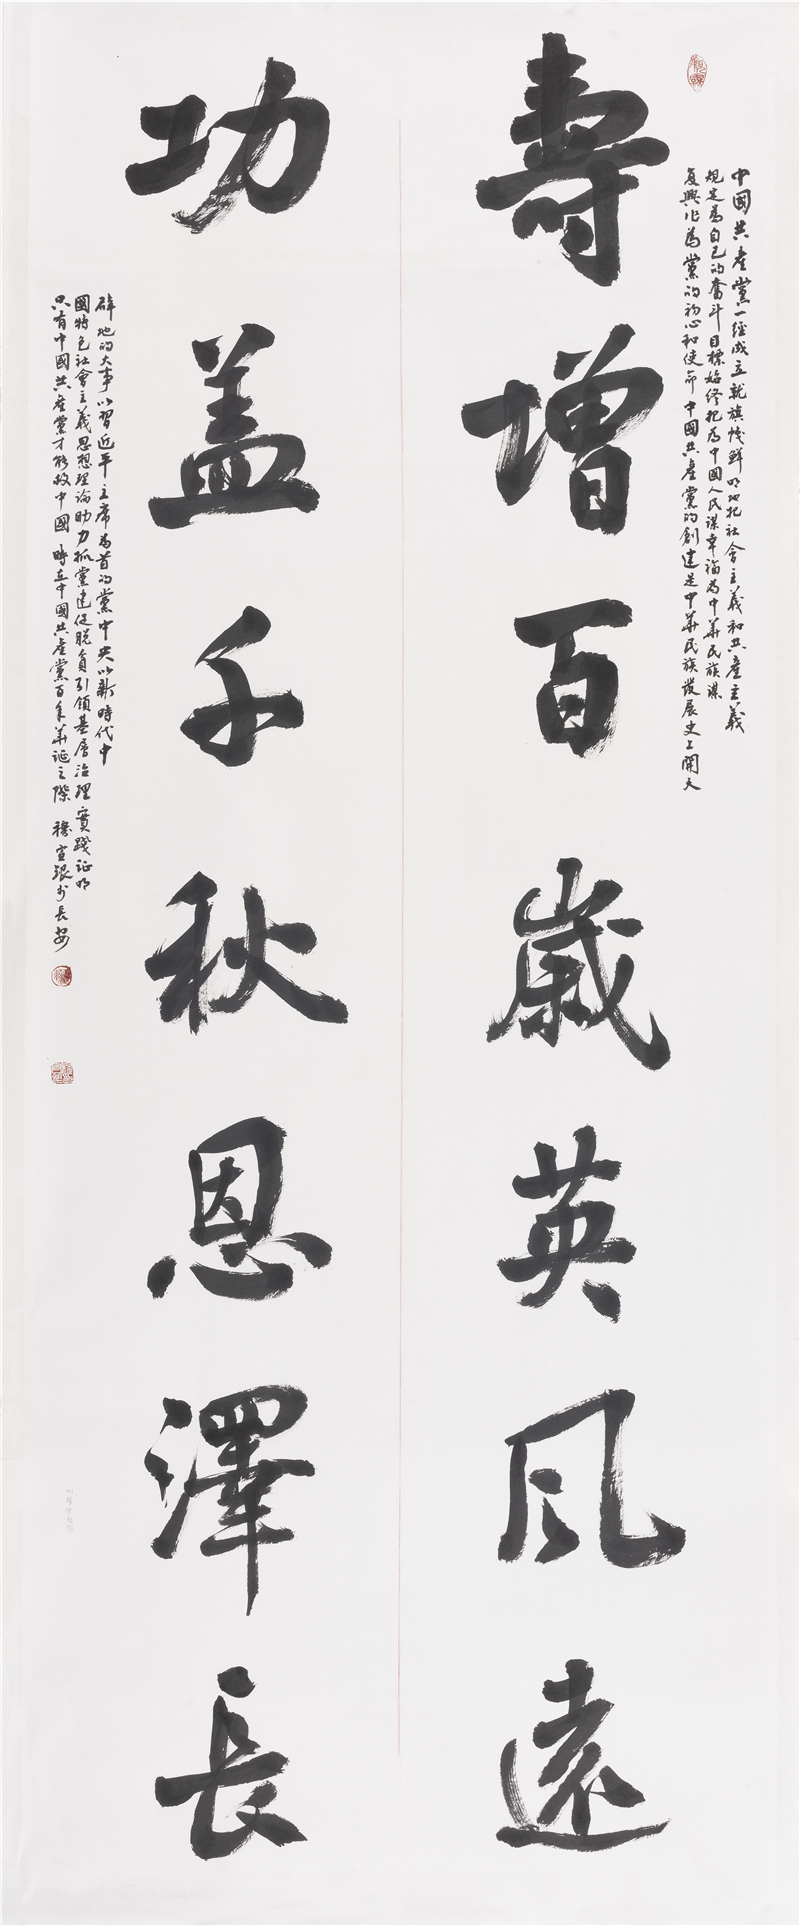 中國共產黨一經成立就旗幟鮮明地把社會主義和共產主義
規定為自己的奮斗目標始終把為中國人民謀幸福為中華民族謀
复興作為黨的初心和使命中國共產黨的創建是中華民族發展史上開天
壽增百歲英风遠
功盖千秋恩澤長
辟地的大事以習近平主席為首的黨中央以新時代中
國特色社會主義思想理論助力抓黨建促脱貧引領基層治理實踐证明
只有中國共產黨才能救中國 時在中國共產黨百年華诞之際 穆宣銀於長安